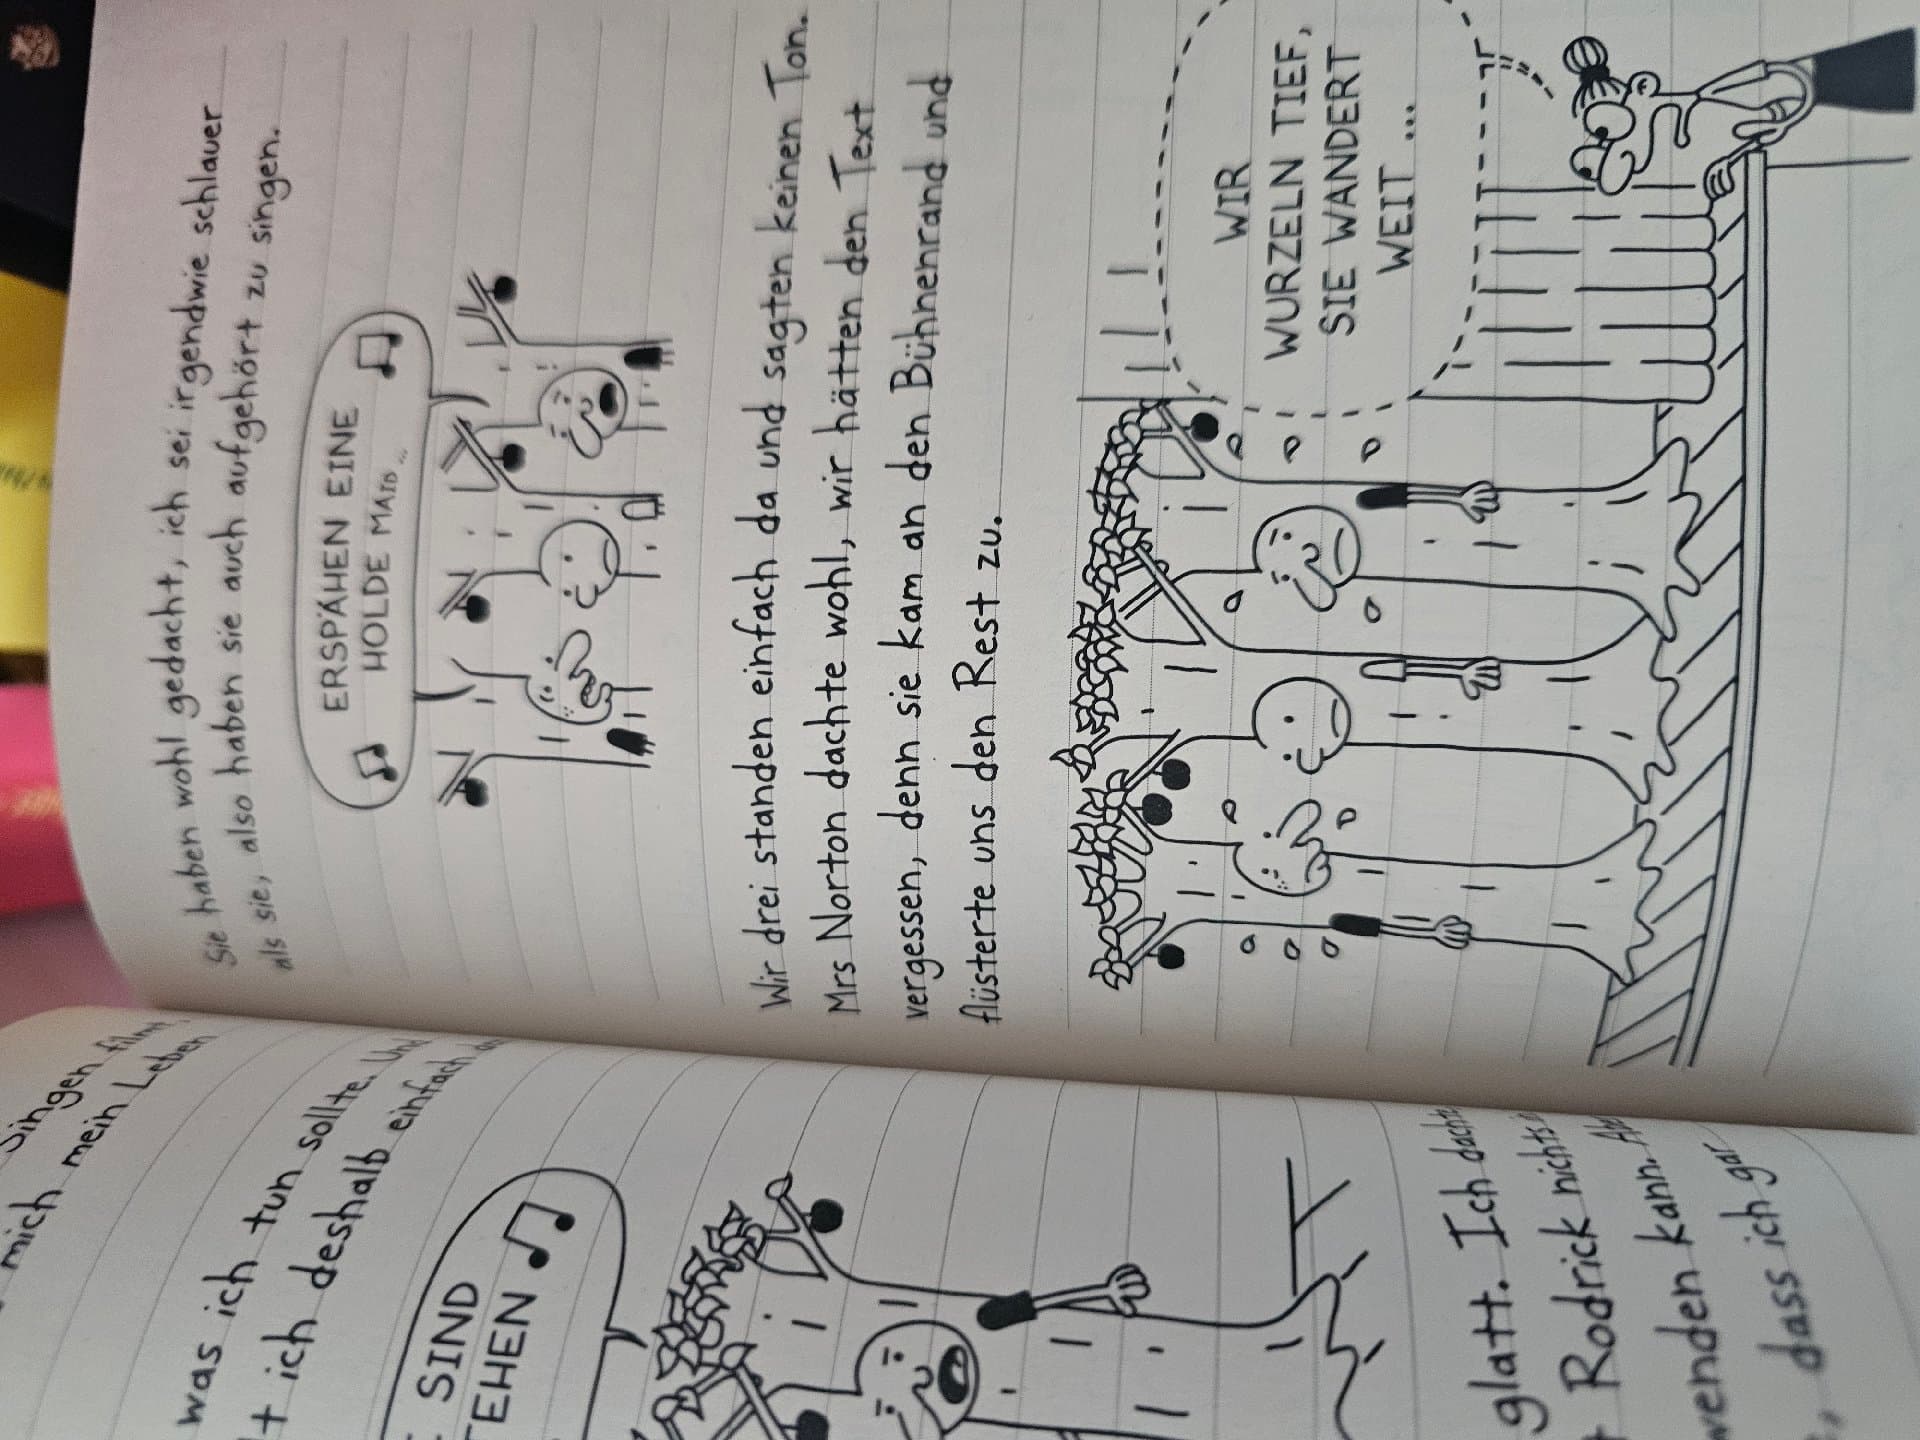 Singen filmt,
mich mein Leben
was ich tun sollte. Und
ich deshalb einfach
SIND
TEHEN
glatt. Ich dachte
Rodrick nichts
wenden kann.
dass ich gar
Sie haben wohl gedacht, ich sei irgendwie schlauer
als sie, also haben sie auch aufgehört zu singen.
ERSPÄHEN EINE
HOLDE MAID ...
Wir drei standen einfach da und sagten keinen Ton.
Mrs Norton dachte wohl, wir hätten den Text
vergessen, denn sie kam an den Bühnenrand und
flüsterte uns den Rest zu.
WIR
WURZELN TIEF,
SIE WANDERT
WEIT ...